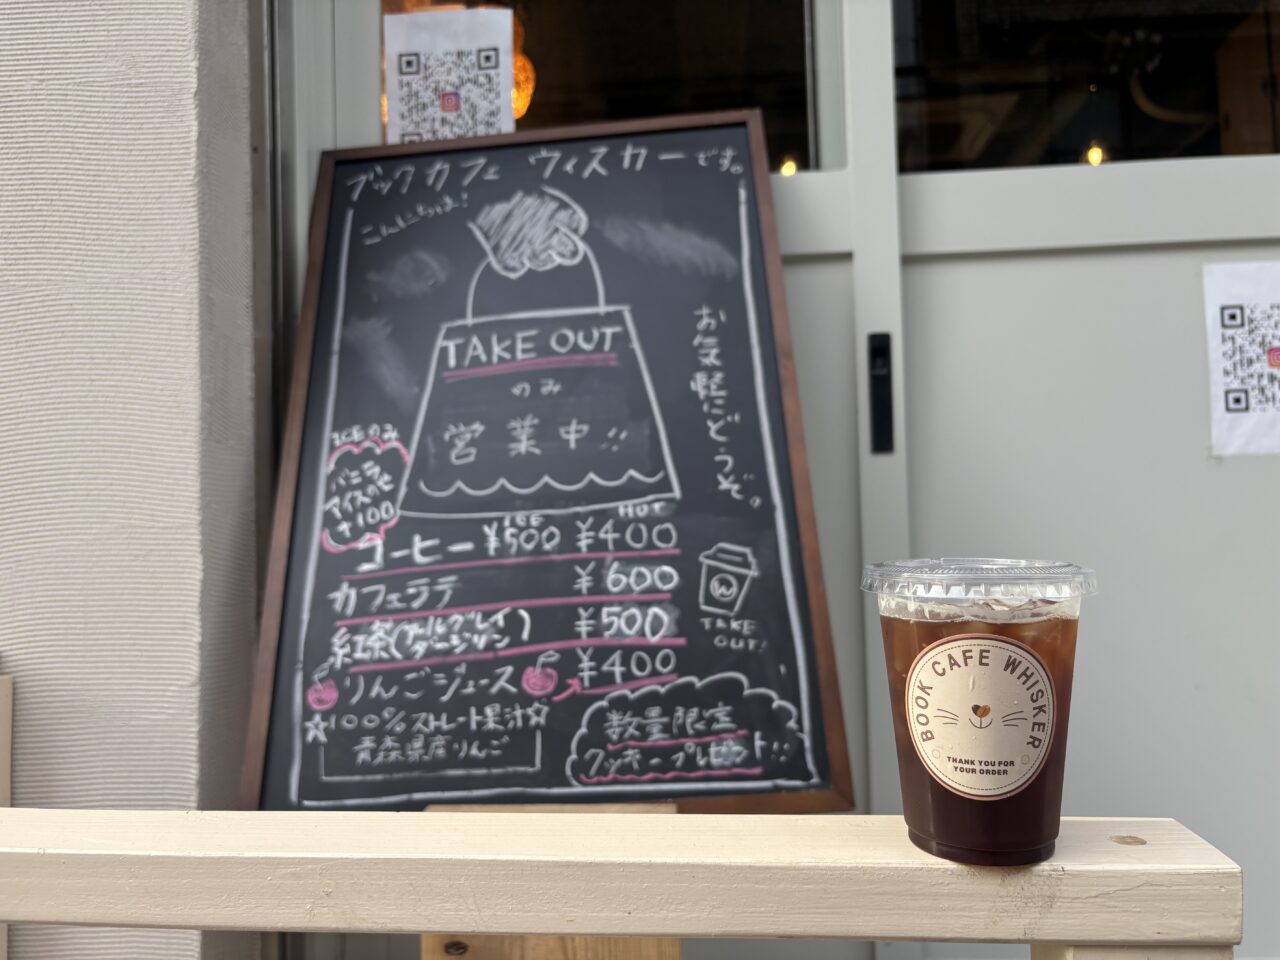 ブックカフェ ウィスカーです。
こんにちは!
TAKE OUT
のみ
営業中!!
お気軽にどうぞ。
ICEのみ
バニラ
アイスのせ
+100
ICE HOT
コーヒー ¥500 ¥400
カフェラテ ¥600
紅茶(アールグレイ
ダージリン) ¥500
りんごジュース ¥400
☆100%ストレート果汁☆
青森県産りんご
W
TAKE
OUT!
数量限定
クッキープレゼント!!
BOOK CAFE WHISKER
THANK YOU FOR
YOUR ORDER